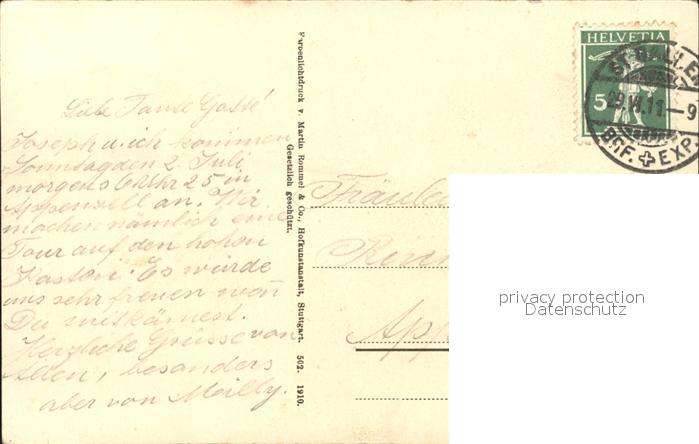 HELVETIA
5
ST. GALLEN
29.VI.11.–9
BRF. EXP.
Liebe Tante
Joseph u. ich kommen
Sonntag den 2. Juli
morgens 6 Uhr 25 in
Appenzell an. Wir
machen nämlich eine
Tour auf den hohen
Kasten. Es würde
uns sehr freuen wenn
Du mitkämest.
Herzliche Grüsse von
Allen, besonders
aber von Mailly.
Farbenlichtdruck v. Martin Rommel & Co., Hofkunstanstalt, Stuttgart. 502. 1910.
Gesetzlich geschützt.
Fräulei
App
privacy protection
Datenschutz